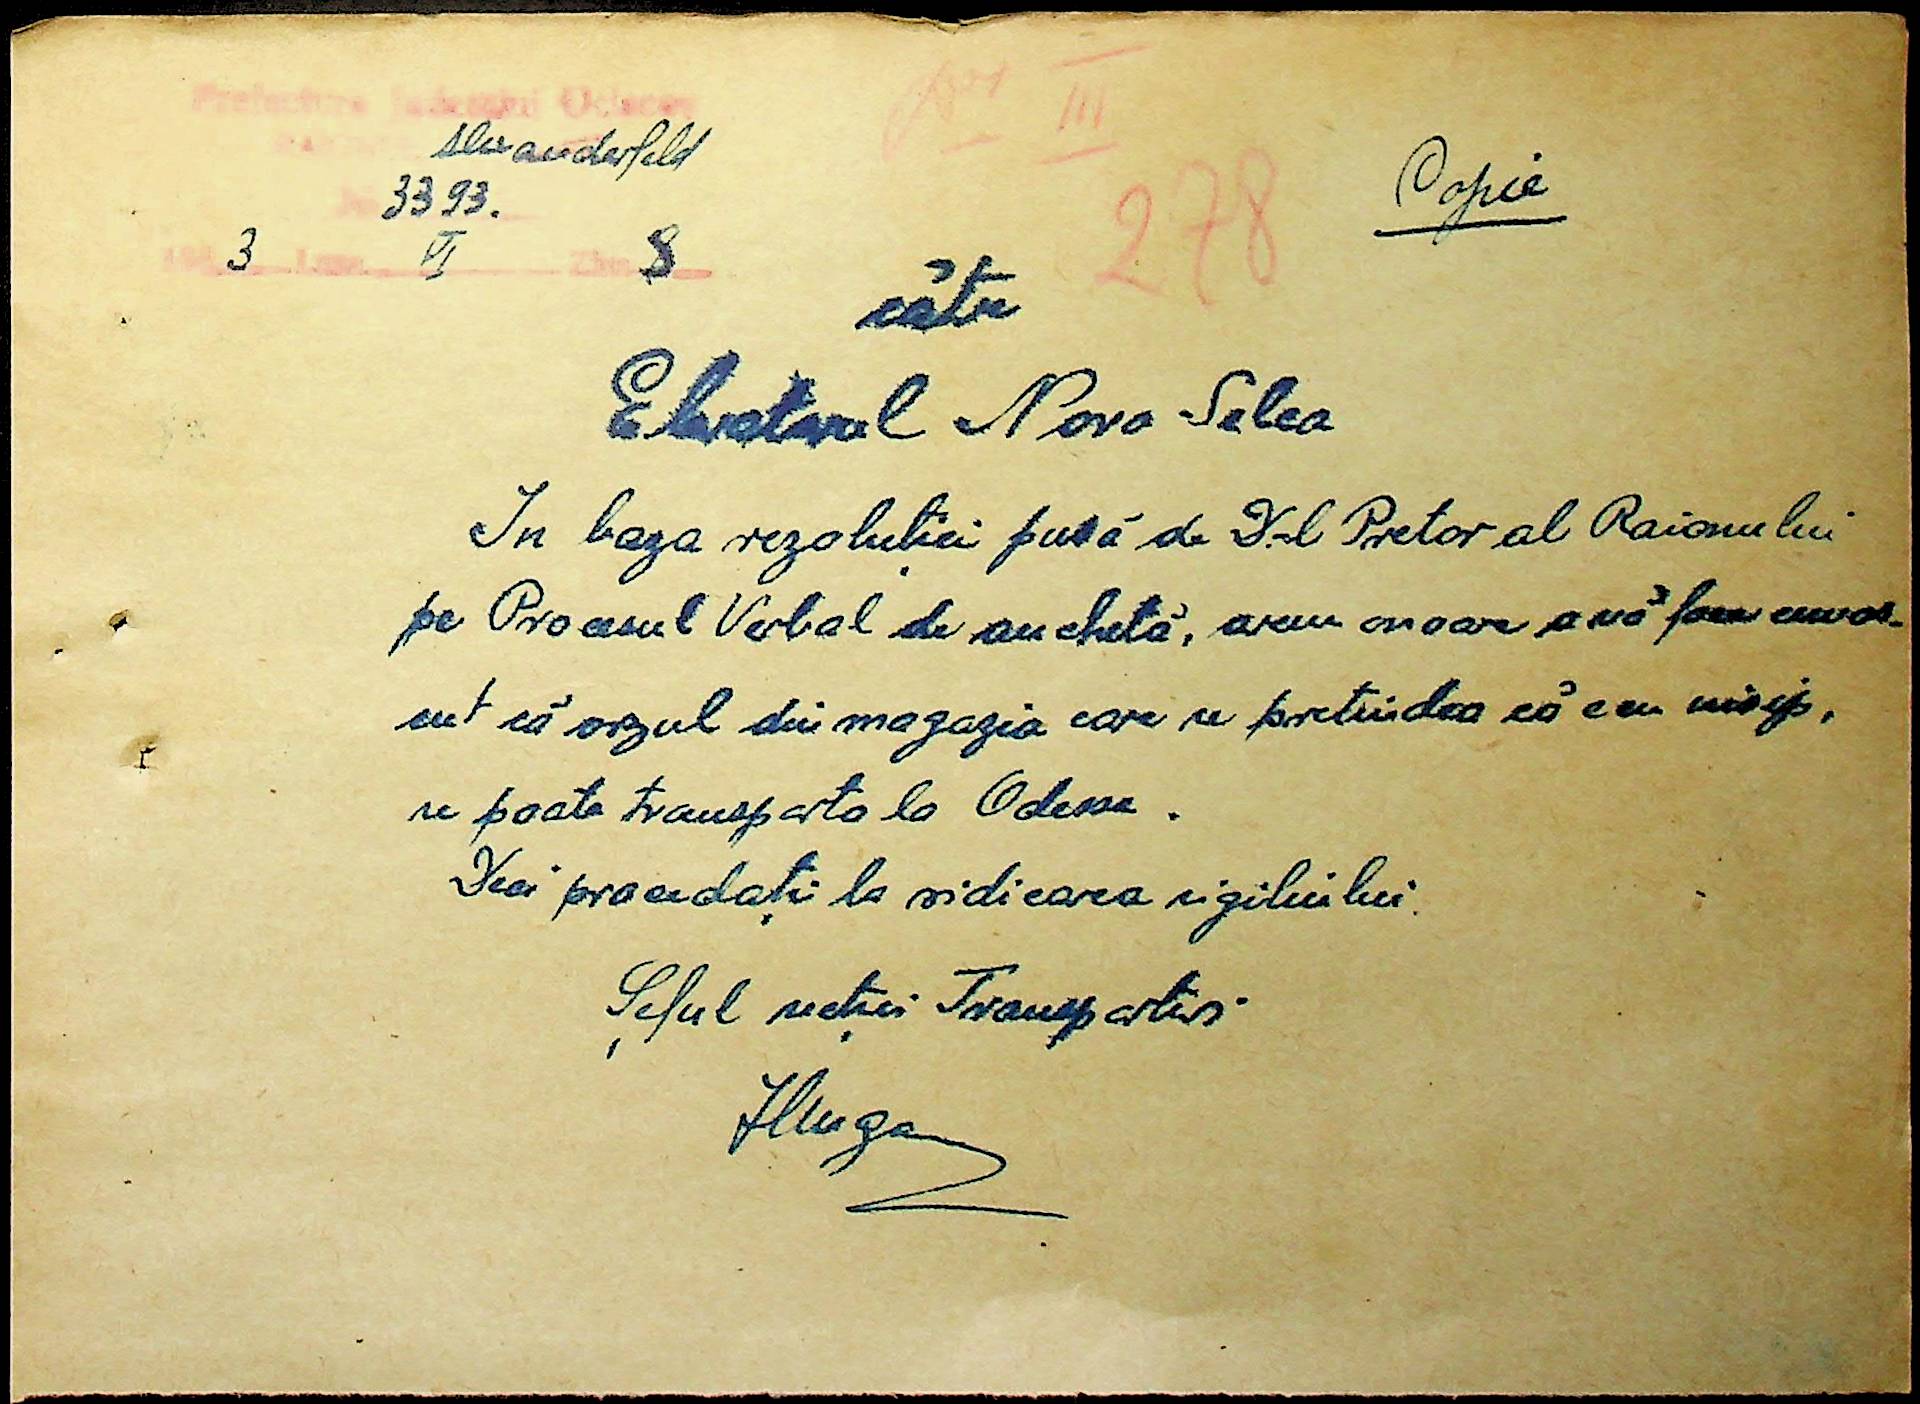 Prefectura Județului
Alexanderfeld
3393.
194 3 Luna VI Ziua 8
III
278
Copie
către
Elevatorul Novo-Selca
In baza rezoluției pusă de D-l Pretor al Raionului
pe Procesul Verbal de anchetă, avem onoare a vă face cunos-
cut că orzul din magazia care se pretindea că e cu nisip,
se poate transporta la Odessa.
Deci procedați la ridicarea sigiliului.
Șeful secției Transporturi